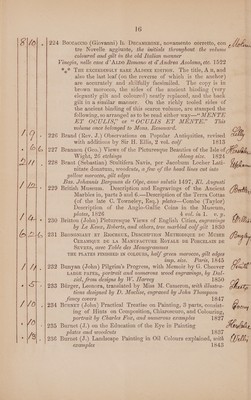 16
224 BOCCACCIO (Giovanni) IL DECAMERONE, novamente corretto, con
tre Novelle aggiunte, the initials throughout the volume
coloured and gilt in the old Italian manner
Vinegia, nelle case d'ALDO Romano et d'Andrea Asolano, etc. 1522
*** THE EXCEEDINGLY RARE ALDINE EDITION. The title, A ii, and
also the last leaf (on the reverse of which is the anchor)
are accurately and skilfully facsimiled. The copy is in
brown morocco, the sides of the ancient binding (very
elegantly gilt and coloured) neatly replaced, and the back
gilt in a similar manner. On the richly tooled sides of
the ancient binding of this scarce volume, are stamped the
following, so arranged as to be read either way—" MENTE
ET OCULIS," or "OCULIS ET MENTE." This
volume once belonged to Mons. Renouard.
226 Brand (Rev. J.) Observations on Popular Antiquities, revised
with additions by Sir H. Ellis, 2 vol. half 1813
227 Brannon (Geo.) Views of the Picturesque Beauties of the Isle of
Wight, 26 etchings oblong size. 1824
228 Brant (Sebastian) Stultifera Navis, per Jacobum Locher Lati-
nitate donatum, woodcuts, a few of the head lines cut into
yellow morocco, gilt edges
Bas. Johannis Bergman de Olpe, anno salutis 1497, Kl. Augusti
229 British Museum. Description and Engravings of the Ancient
Marbles in, parts 5 and 6—Description of the Terra Cottas
(of the late C. Towneley, Esq.) plates—Combe (Taylor)
Description of the Anglo-Gallic Coins in the Museum,
plates, 1826 4 vol. in 3. v. y.
230 Britton (John) Picturesque Views of English Cities, engravings
by Le Keux, Roberts, and others, tree marbled calf gilt 1830
231 BRONGNIART ET RIOCREUX, DESCRIPTION METHODIQUE DU MUSEE
CERAMIQUE DE LA MANUFACTURE ROYALE DE PORCELAIN DE
SEVRES, avec Table des Monogrammes
THE PLATES FINISHED IN COLOURS, half green morocco, gilt edges
imp. size. Paris, 1845
232 Bunyan (John) Pilgrim's Progress, with Memoir by G. Cheever
LARGE PAPER, portrait and numerous wood engravings, by Dal-
ziel, from designs by W. Harvey 1850
233 Bürger, Leonora, translated by Miss M. Cameron, with illustra-
tions designed by D. Maclise, engraved by John Thompson
fancy covers 1847
234 BURNET (John) Practical Treatise on Painting, 3 parts, consist-
ing of Hints on Composition, Chiaroscuro, and Colouring,
portrait by Charles Fox, and numerous examples 1827
235 Burnet (J.) on the Education of the Eye in Painting
plates and woodcuts 1837
236 Burnet (J.) Landscape Painting in Oil Colours explained, with
examples 1845